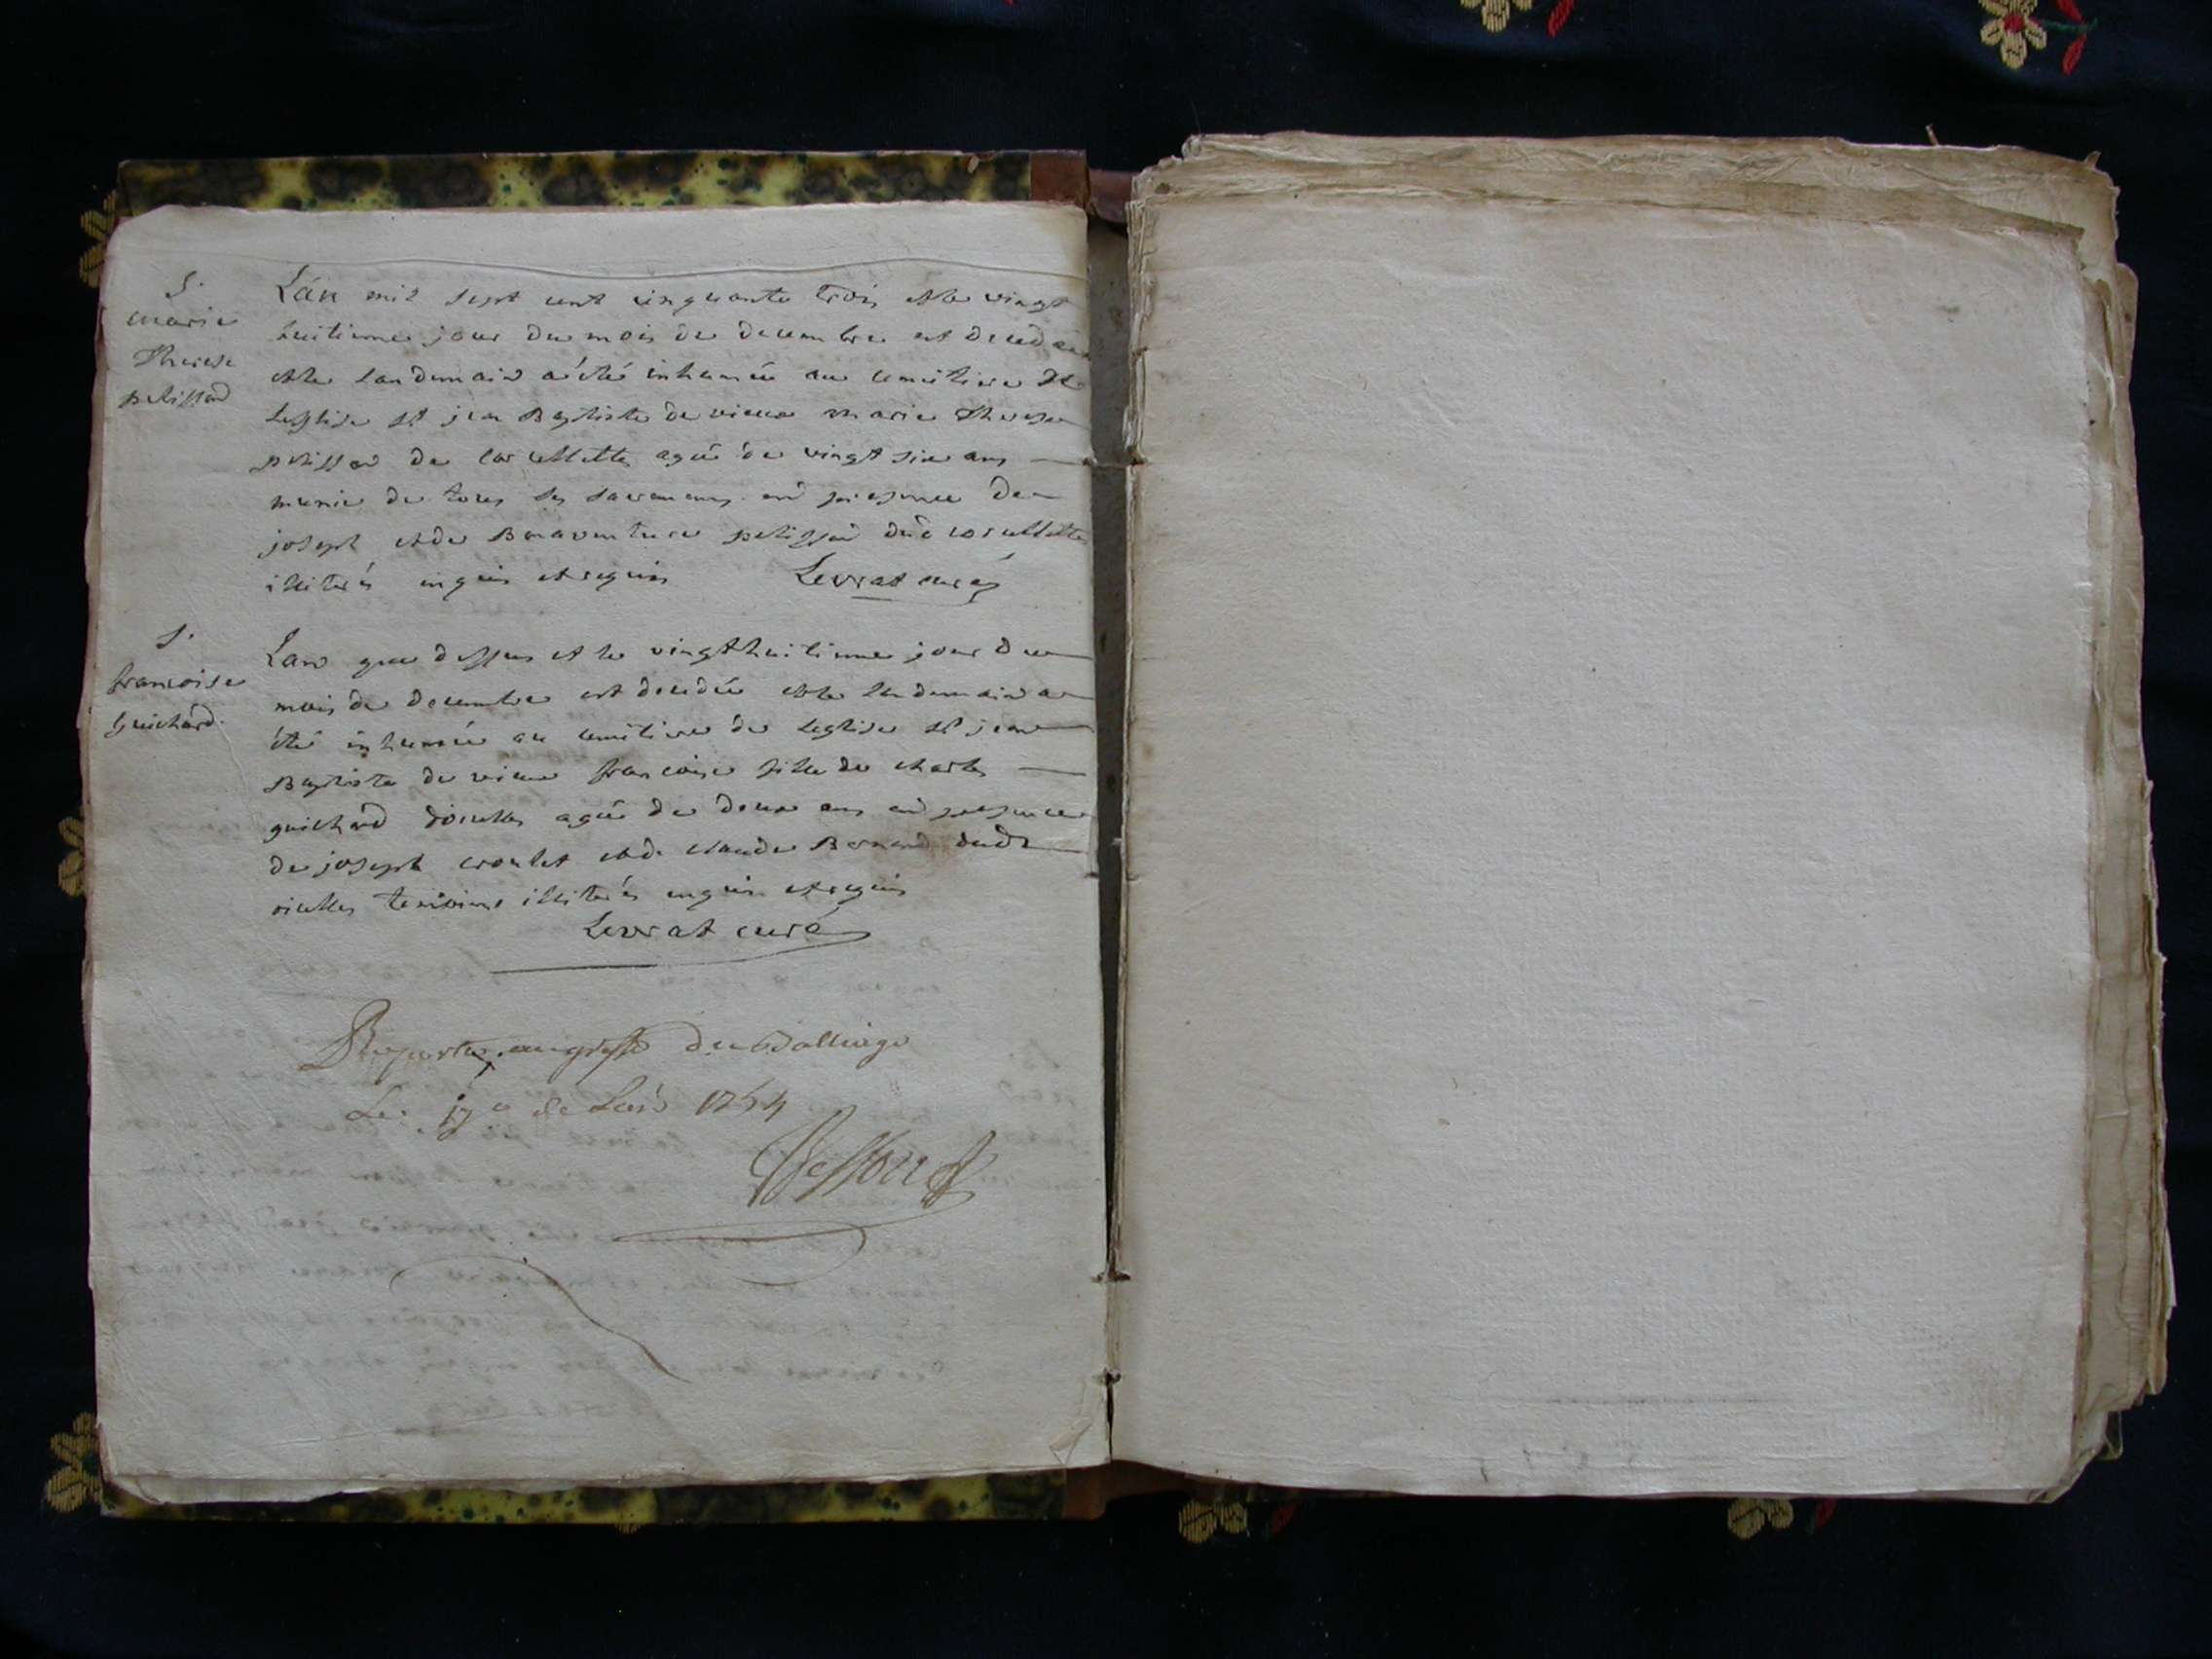 S.
marie
Therese
pelissod
Lán mil sept cent cinquante trois et le vingt
huitieme jour du mois de decembre est decedée
et le landemain a été inhumée au cemitiere de
leglise st jean Baptiste de vieux marie Therese
pelissod de cor agée de vingt six ans
munie de tous ses sacremens en presence de
joseph et de Bonaventure pelissod du
illiterés enquis et requis Levrat curé
S.
francoise
guichard
Lan que dessus et le vingthuitieme jour du
mois de decembre est decedée et le landemain a
été inhumée au cemitiere de leglise st jean
Baptiste de vieux francoise fille de charles
guichard agée de deux ans en presence
de joseph et de claude Bernard dud
temoins illiterés enquis et requis
Levrat curé
Raporté au greffe du Balliage
Le 1754